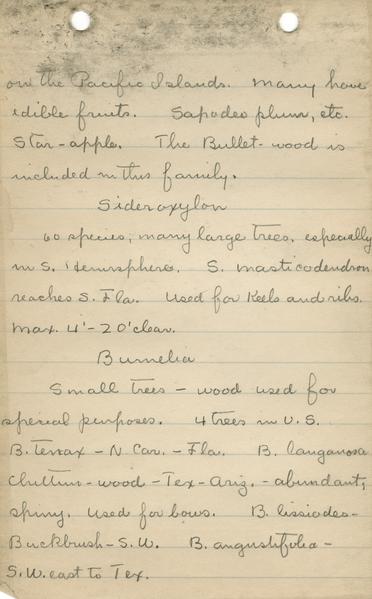 on the Pacific Islands. Many have
edible fruits. Sapodeo plum, etc.
Star-apple. The Bullet-wood is
included in this family.
Sideroxylon
60 species, many large trees, especially
in S. Hemisphere. S. masticodendron
reaches S. Fla. Used for keels and ribs.
Max. 4'-20' clear.
Bumelia
Small trees - wood used for
special purposes. 4 trees in U.S.
B. tenax - N. Car. - Fla. B. langanosa
Chittim-wood - Tex-Ariz. - abundant;
spiny. Used for bows. B. lissiodes-
Buckbrush - S.W. B. angustifolia -
S.W. east to Tex.